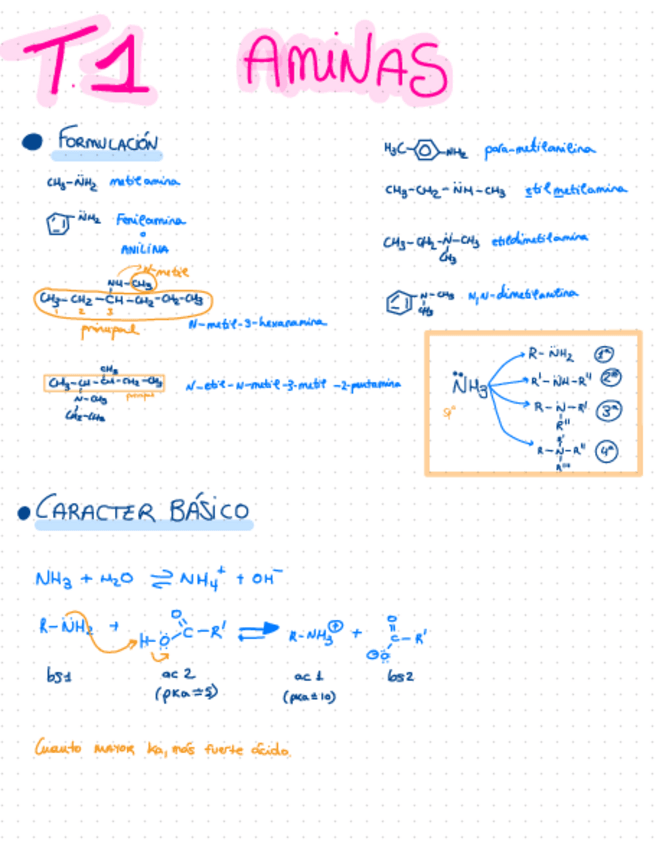 T.1 AMINAS
FORMULACIÓN
CH3-N̈H2 metilamina
N̈H2 Fenilamina
o
ANILINA
N-metil
NH-CH3
CH3-CH2-CH-CH2-CH2-CH3
1 2 3
principal
N-metil-3-hexanamina
CH3
CH3-CH-CH-CH2-CH3
principal
N-CH3
CH2-CH3
N-etil-N-metil-3-metil-2-pentamina
H3C- -NH2 para-metilanilina
CH3-CH2-N̈H-CH3 etilmetilamina
CH3-CH2-N̈-CH3 etildimetilamina
CH3
N-CH3 N,N-dimetilanilina
CH3
N̈H3
R-N̈H2 1ª
R'-N̈H-R'' 2ª
R-N-R' 3ª
R''
R'
R-N-R'' 4ª
R'''
CARACTER BÁSICO
NH3 + H2O ⇌ NH4+ + OH-
R-N̈H2 + H-O-C-R' ⇌ R-NH3⊕ + C-R'
O
O
⊖O
bs1 ac 2 ac 1 bs2
(pKa≈5) (pKa≈10)
Cuanto mayor ka, más fuerte ácido.